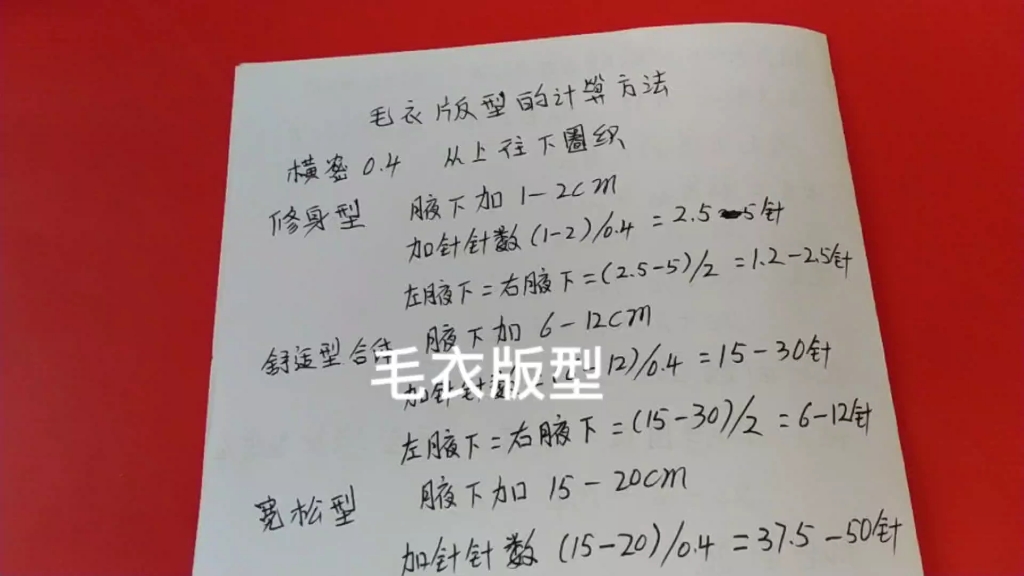 毛衣版型的计算方法
横密 0.4 从上往下圈织
修身型 腋下加 1-2cm
加针针数(1-2)/0.4 = 2.5-5针
左腋下=右腋下=(2.5-5)/2 =1.2-2.5针
舒适型合体 腋下加 6-12cm
加针针 -12)/0.4 =15-30针
毛衣版型
左腋下=右腋下=(15-30)/2 =6-12针
宽松型 腋下加 15-20cm
加针针数 (15-20)/0.4 =37.5-50针